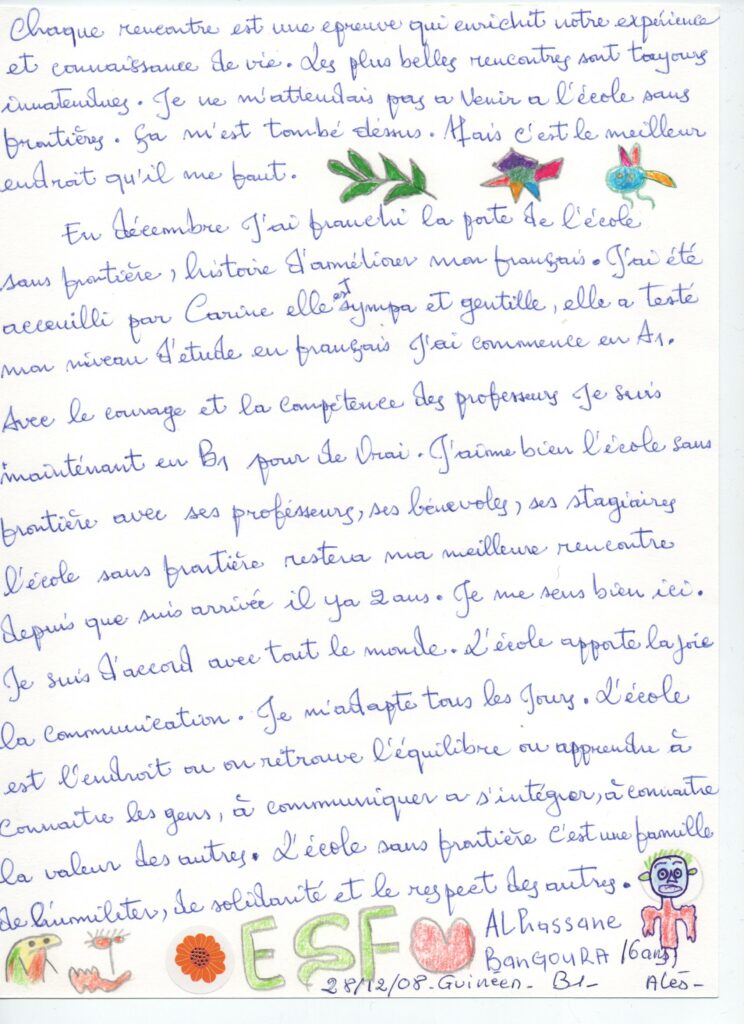 Chaque rencontre est une epreuve qui enrichit notre expérience
et connaissance de vie. Les plus belles rencontres sont toujours
innatendues. Je ne m'attendais pas a Venir a l'école sans
frontières. Ça m'est tombé déssus. Mais c'est le meilleur
endroit qu'il me faut.
En décembre J'ai franchi la porte de l'école
sans frontière, histoire d'améliorer mon français. J'ai été
acceuilli par Carine elle est sympa et gentille, elle a testé
mon niveau d'étude en français J'ai commence en A1.
Avec le courage et la compétence des professeurs Je suis
maintenant en B1 pour de Vrai. J'aime bien l'école sans
frontière avec ses proféseurs, ses bénevoles, ses stagiaires
l'école sans frontière restera ma meilleure rencontre
depuis que suis arrivée il ya 2 ans. Je me sens bien ici.
Je suis d'accord avec tout le monde. L'école apporte la joie
la communication. Je m'adapte tous les Jours. L'école
est l'endroit ou on retrouve l'équilibre ou apprendre à
Connaitre les gens, à communiquer a s'intégrer, à connaitre
la valeur des autres. L'école sans frontière c'est une famille
de l'humiliter, de solidarité et le respect des autres.
ESF ALhassane
BANGOURA
28/12/08-Guineen- B1- Alès-